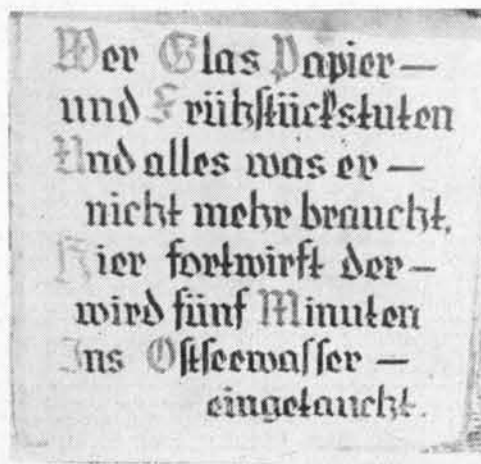 Wer Glas Papier —
und Frühstückstuten
Und alles was er —
nicht mehr braucht,
Hier fortwirft der —
wird fünf Minuten
Ins Ostseewasser —
eingetaucht.